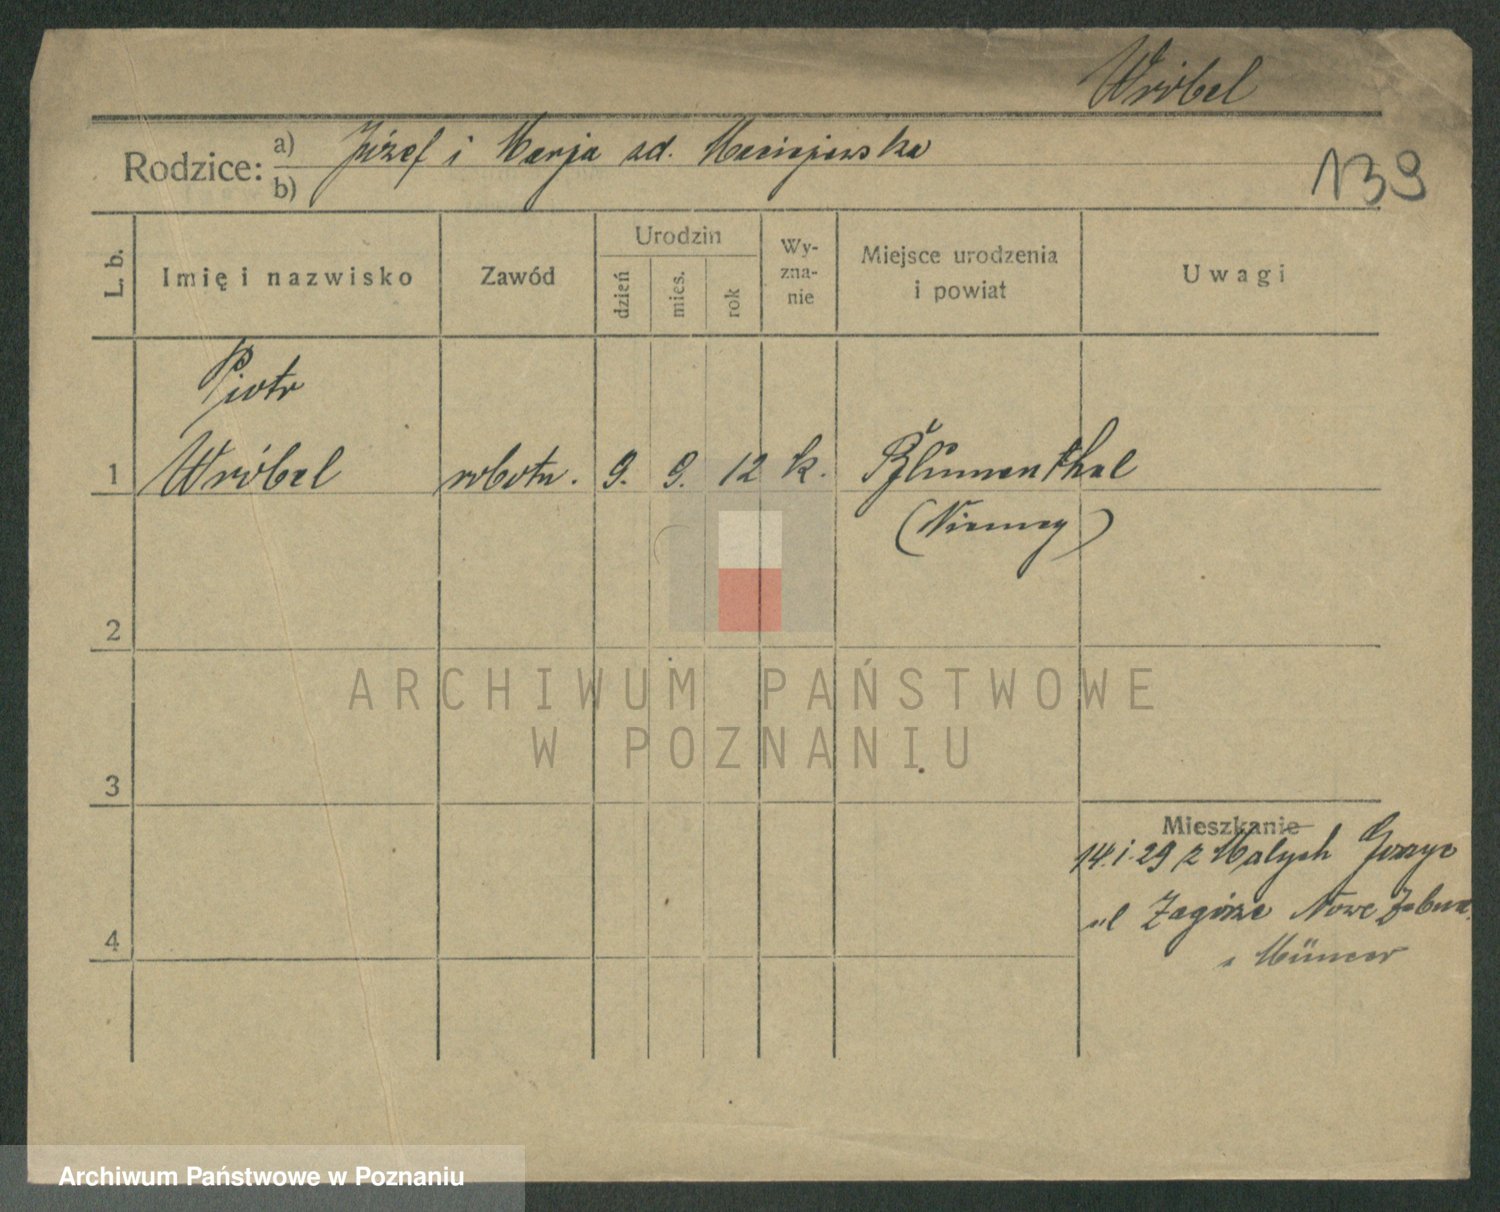 Wróbel
Rodzice: a) Józef i Marja zd. Maciejewska
b)
139
L. b.
Imię i nazwisko
Zawód
Urodzin
dzień
mies.
rok
Wy-
zna-
nie
Miejsce urodzenia
i powiat
Uwagi
Piotr
1 Wróbel robotn. 9. 9. 12 k. Blumenthal
(Niemcy)
2
3
4
Mieszkanie
14.i.29 z Małych Gorzyc
ul Zagórze Nowe
ARCHIWUM PAŃSTWOWE
W POZNANIU
Archiwum Państwowe w Poznaniu